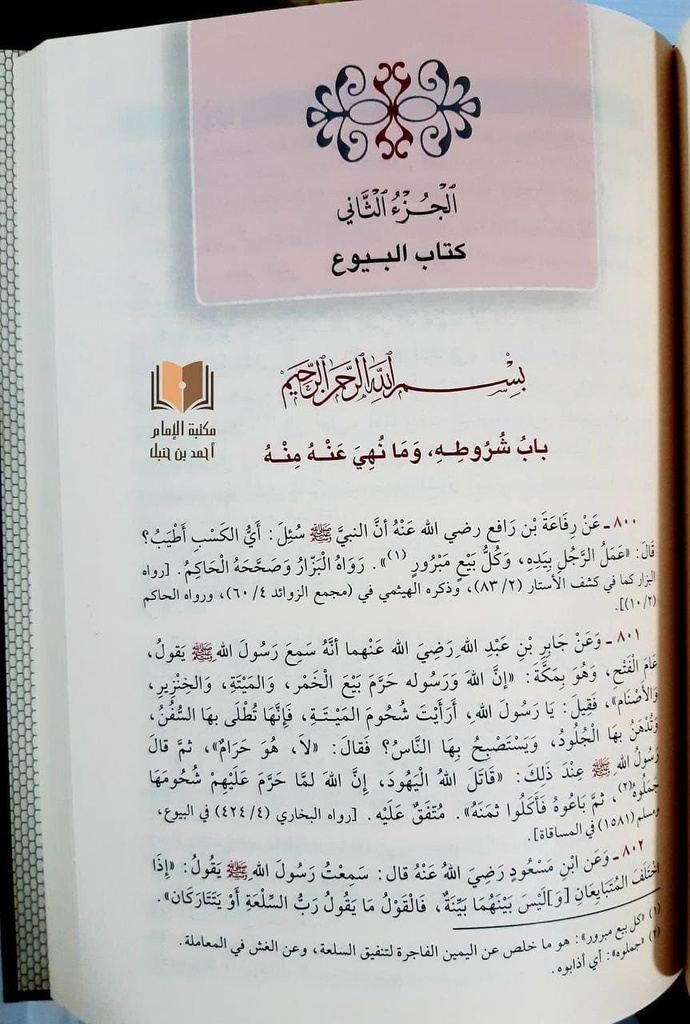 الْجُزْءُ الثَّانِي
كتاب البيوع
بِسْمِ اللَّهِ الرَّحْمَنِ الرَّحِيمِ
مكتبة الإمام
أحمد بن حنبل
بابُ شُرُوطِـهِ، وَمَا نُهِيَ عَنْهُ مِنْهُ
٨٠٠ ـ عَنْ رِفَاعَةَ بْن رَافع رضي الله عَنْهُ أنَّ النبيَّ ﷺ سُئِلَ: أَيُّ الكَسْبِ أَطْيَبُ؟
قَالَ: «عَمَلُ الرَّجُلِ بِيَدِهِ، وَكُلُّ بَيْعٍ مَبْرُورٍ (١)». رَوَاهُ الْبَزَّارُ وَصَحَّحَهُ الْحَاكِمُ. [رواه
البزار كما في كشف الأستار (٨٣/٢)، وذكره الهيثمي في (مجمع الزوائد ٦٠/٤)، ورواه الحاكم
(١٠/٢)].
٨٠١ ـ وَعَنْ جَابِرِ بْنِ عَبْدِ اللهِ رَضِيَ الله عَنْهما أنَّهُ سَمِعَ رَسُولَ اللهِ ﷺ يَقولُ،
عَامَ الْفَتْحِ، وَهُوَ بِمَكَّةَ: «إنَّ اللهَ وَرَسُوله حَرَّمَ بَيْعَ الْخَمْر، وَالمَيْتَةِ، وَالْخِنْزِيرِ،
وَالأَصْنَامِ»، فَقِيلَ: يَا رَسُولَ اللهِ، أَرَأَيْتَ شُحُومَ المَيْـتَـةِ، فَإِنَّهَا تُطْلَى بهَا السُّفُنُ،
وَتُدْهَنُ بهَا الْجُلُودُ، وَيَسْتَصْبِحُ بِهَا النَّاسُ؟ فَقالَ: «لاَ، هُوَ حَرَامٌ»، ثمَّ قالَ
رَسُولُ اللهِ ﷺ عِنْدَ ذَلِكَ: «قَاتَلَ اللهُ الْيَهُودَ، إنَّ اللهَ لمَّا حَرَّمَ عَلَيْهِمْ شُحُومَهَا
جَمَلُوهُ(٢)، ثمَّ بَاعُوهُ فَأَكَلُوا ثمَنَهُ». مُتَّفَقٌ عَلَيْهِ. [رواه البخاري (٤٢٤/٤) في البيوع،
ومسلم (١٥٨١) في المساقاة].
٨٠٢ ـ وَعَن ابْنِ مَسْعُودٍ رَضِيَ اللهُ عَنْهُ قال: سَمِعْتُ رَسُولَ اللهِ ﷺ يَقُولُ: «إِذَا
اخْتَلَفَ المُتَبَايِعَانِ [وَ]لَيْسَ بَيْنَهُمَا بَيِّنَةٌ، فَالْقَوْلُ مَا يَقُولُ رَبُّ السِّلْعَةِ أَوْ يَتَتَارَكَان».
(١) «كل بيع مبرور»: هو ما خلص عن اليمين الفاجرة لتنفيق السلعة، وعن الغش في المعاملة.
(٢) «جملوه»: أي أذابوه.